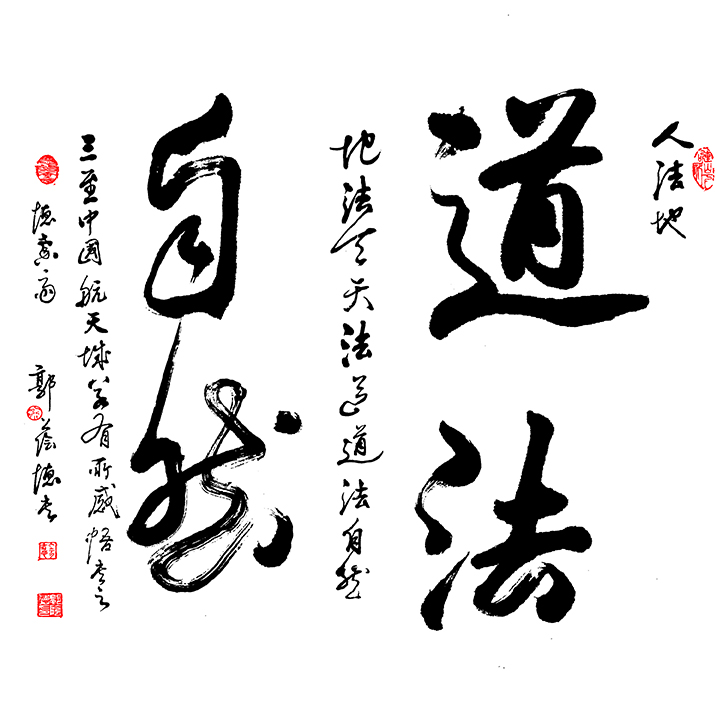 人法地
道法
地法天天法道道法自然
自然
三至中国航天城若有所感悟书之
德宗斋
郭荫德书